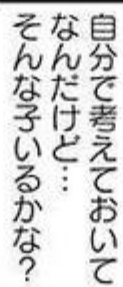 自分で考えておいて
なんだけど…
そんな子いるかな?